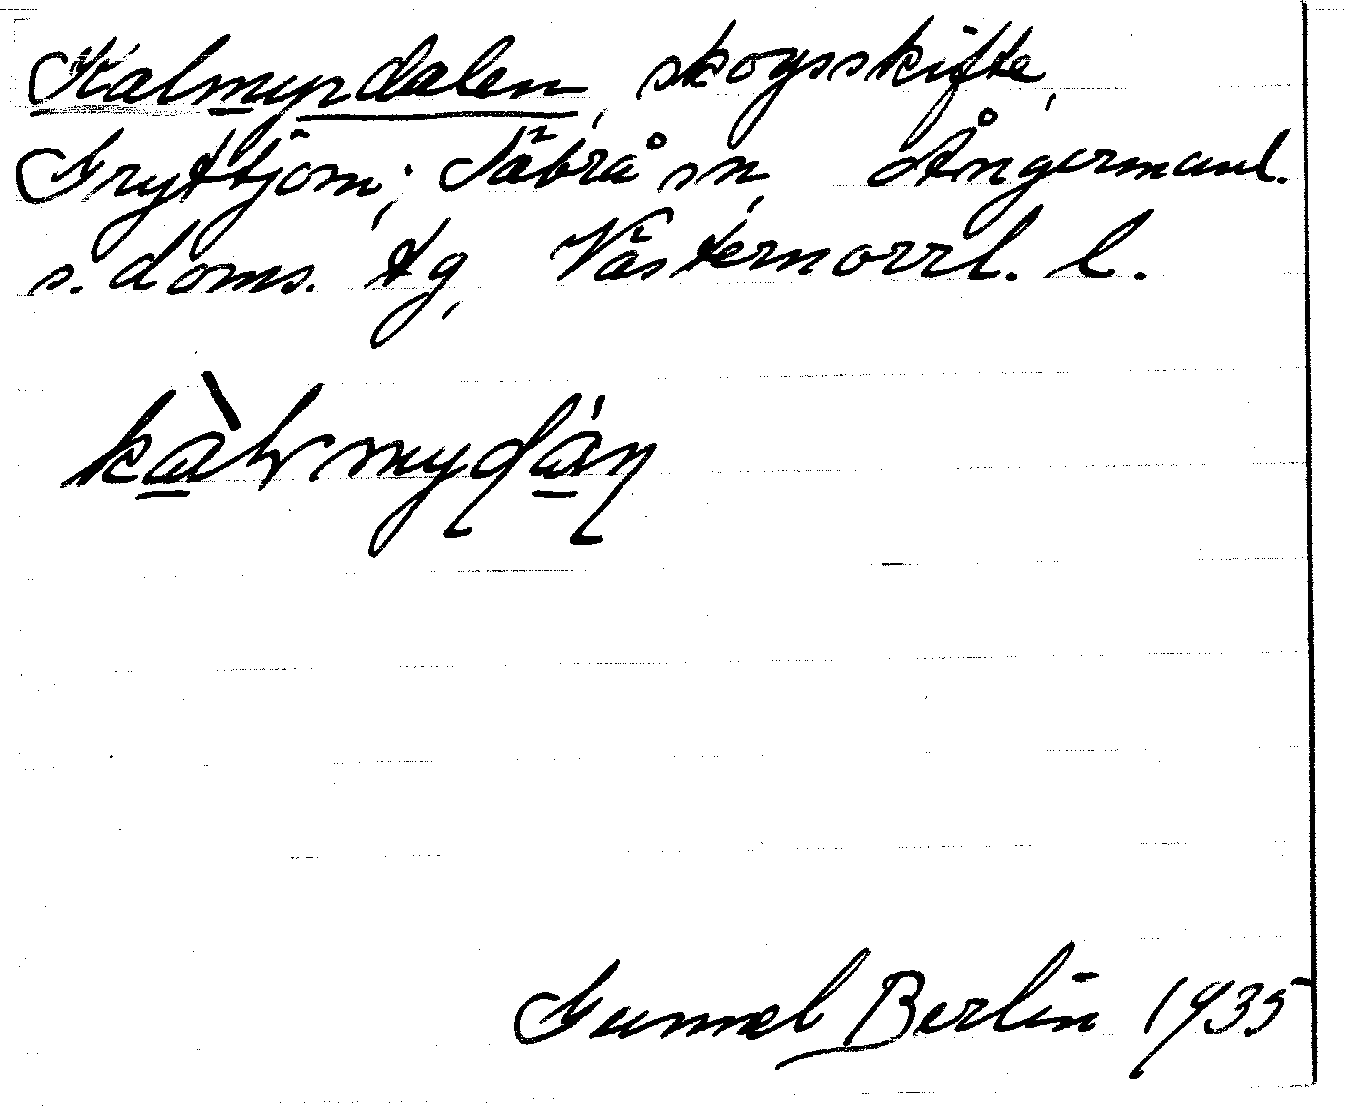 Kalmyrdalen, skogsskifte,
Gryttjom, Säbrå sn, Ångermanl.
s. doms. tg, Västernorrl. l.
Gunnel Berlin 1935